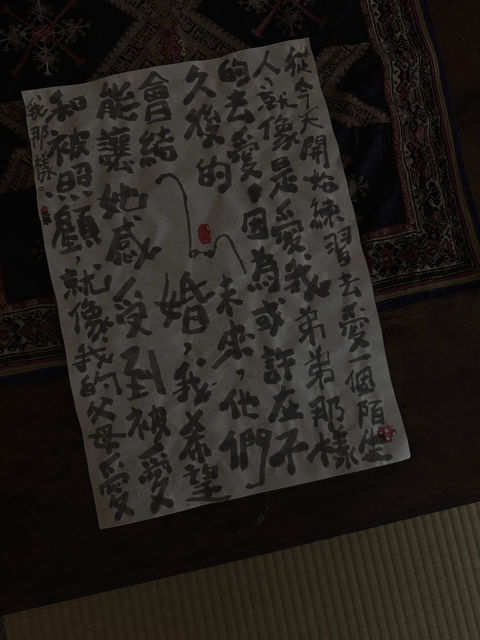 從今天開始練習去愛一個陌生
人,就像是愛我弟弟那樣
的去愛。因為或許在不
久後的未來,他們
會結婚,我希望
能讓她感受到被愛
和被照顧,就像我的父母愛
我那樣。